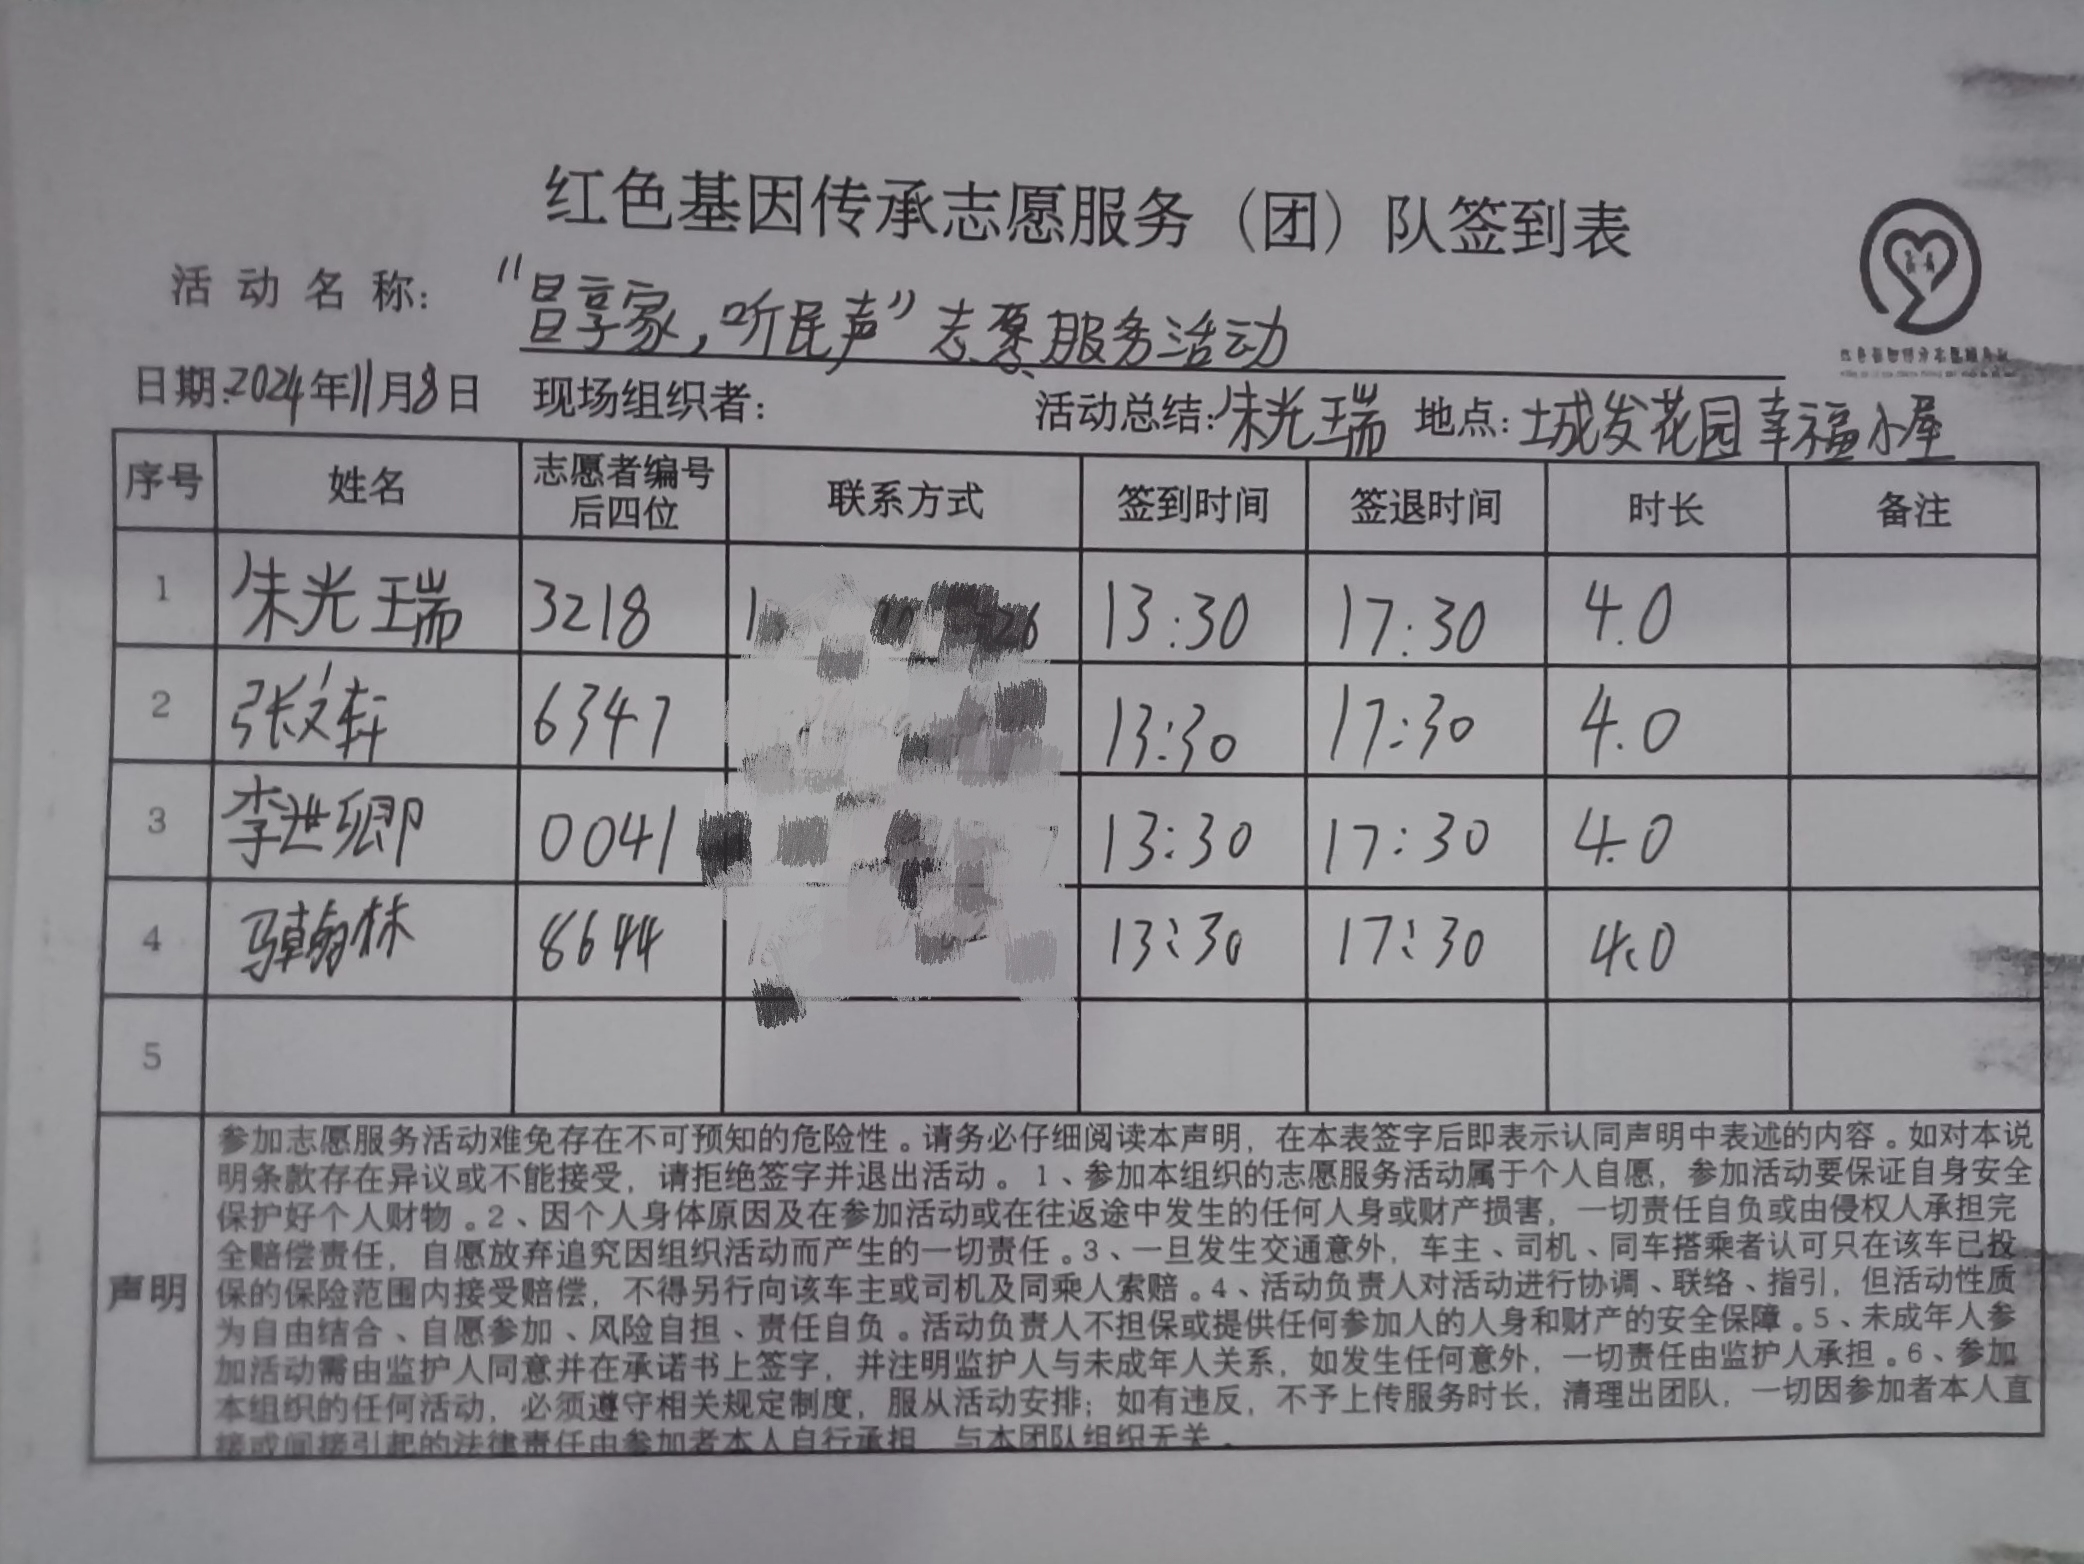 红色基因传承志愿服务（团）队签到表
活动名称：“昌享家，听民声”志愿服务活动
日期：2024年11月8日 现场组织者： 活动总结：朱光瑞 地点：城发花园幸福小屋
序号 姓名 志愿者编号后四位 联系方式 签到时间 签退时间 时长 备注
1 朱光瑞 3218 13:30 17:30 4.0
2 张文轩 6347 13:30 17:30 4.0
3 李世卿 0041 13:30 17:30 4.0
4 马翰林 8644 13:30 17:30 4.0
5
声明
参加志愿服务活动难免存在不可预知的危险性。请务必仔细阅读本声明，在本表签字后即表示认同声明中表述的内容。如对本说
明条款存在异议或不能接受，请拒绝签字并退出活动。1、参加本组织的志愿服务活动属于个人自愿，参加活动要保证自身安全
保护好个人财物。2、因个人身体原因及在参加活动或在往返途中发生的任何人身或财产损害，一切责任自负或由侵权人承担完
全赔偿责任，自愿放弃追究因组织活动而产生的一切责任。3、一旦发生交通意外，车主、司机、同车搭乘者认可只在该车已投
保的保险范围内接受赔偿，不得另行向该车主或司机及同乘人索赔。4、活动负责人对活动进行协调、联络、指引，但活动性质
为自由结合、自愿参加、风险自担、责任自负。活动负责人不担保或提供任何参加人的人身和财产的安全保障。5、未成年人参
加活动需由监护人同意并在承诺书上签字，并注明监护人与未成年人关系，如发生任何意外，一切责任由监护人承担。6、参加
本组织的任何活动，必须遵守相关规定制度，服从活动安排；如有违反，不予上传服务时长，清理出团队，一切因参加者本人直
接或间接引起的法律责任由参加者本人自行承担，与本团队组织无关。